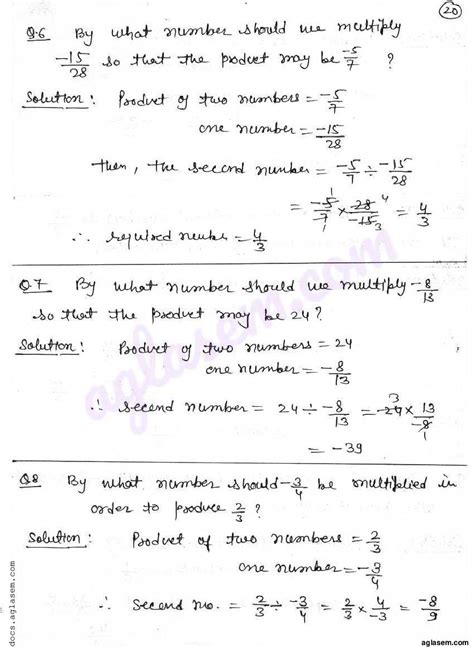 20
Q.6 By what number should we multiply
-15/28 so that the product may be -5/7 ?
Solution: Product of two numbers = -5/7
one number = -15/28
then, the second number = -5/7 ÷ -15/28
= -5/7 × 28/-15 = 4/3
1 4
1 3
∴ required number = 4/3
Q.7 By what number should we multiply -8/13
so that the product may be 24?
Solution: Product of two numbers = 24
one number = -8/13
∴ second number = 24 ÷ -8/13 = -24 × 13/-8
3
1
= -39
Q8 By what number should -3/4 be multiplied in
order to produce 2/3 ?
Solution: Product of two numbers = 2/3
one number = -3/4
∴ second no. = 2/3 ÷ -3/4 = 2/3 × 4/-3 = -8/9
aglasem.com
docs.aglasem.com
aglasem.com